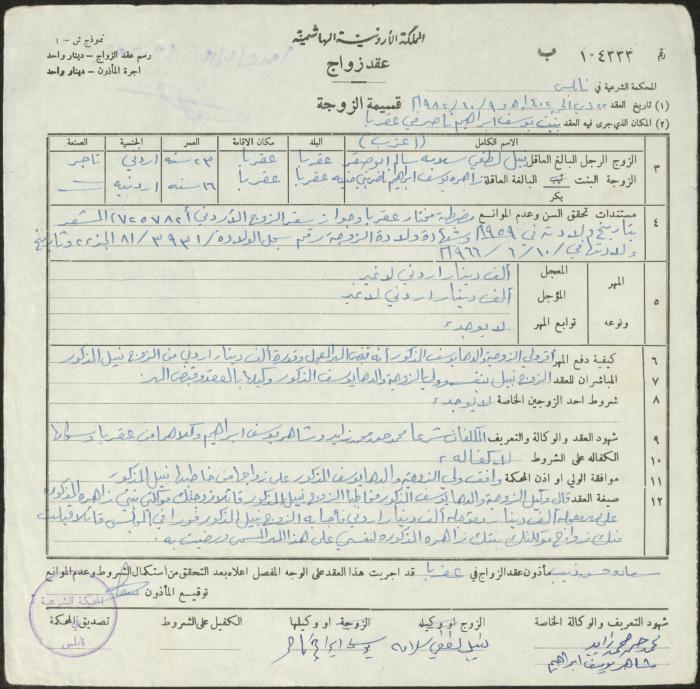 المملكة الأردنية الهاشمية
نموذج ش - ١
رقم ١٠٤٣٣٣ ب
عقد زواج
رسم عقد الزواج - دينار واحد
اجرة المأذون - دينار واحد
المحكمة الشرعية في نابلس
قسيمة الزوجة
(١) تاريخ العقد ٢٢ ذي الحجة ١٤٠٢ هـ و ٩ / ١٠ / ١٩٨٢ م
(٢) المكان الذي جرى فيه العقد بيت يوسف ابراهيم ناصر في عقربا
الاسم الكامل (اعزب) البلد مكان الاقامة العمر الجنسية الصنعة
٣ الزوج الرجل البالغ العاقل نبيل لطفي سلامه سالم ابو صقر عقربا عقربا ٢٣ سنه اردني تاجر
الزوجة البنت ثيب البالغة العاقلة زاهره يوسف ابراهيم ناصر بني منيه عقربا عقربا ١٦ سنه اردنيه
بكر
٤ مستندات تحقق السن وعدم الموانع مضبطة مختار عقربا وجواز سفر الزوج الأردني
بتاريخ ولادته في ١٩٥٩ م وشهادة ولادة الزوجة رقم سجل الولادة / ٣٩٣١ / ٨١
ولادتها في / ١٠ / ٦ / ١٩٦٦ م
٥ المهر المعجل ألف دينار اردني لا غير
المؤجل ألف دينار اردني لا غير
ونوعه توابع المهر لا يوجد
٦ كيفية دفع المهر أقر ولي الزوجة والدها يوسف المذكور أنه قبض المهر المعجل وقدره ألف دينار اردني من الزوج نبيل المذكور
٧ المباشران للعقد الزوج نبيل بنفسه وولي الزوجة والدها يوسف المذكور وكيلها بالعقد وقبض المهر
٨ شروط احد الزوجين الخاصة لا يوجد
٩ شهود العقد والوكالة والتعريف المكلفان شرعا محمد حمد محمد زايد وشاهر يوسف ابراهيم وكلاهما من عقربا وسكانها
١٠ الكفالة على الشروط لا كفاله
١١ موافقة الولي او اذن المحكمة وافق ولي الزوجة والدها يوسف المذكور على زواجها من خاطبها نبيل المذكور
١٢ صيغة العقد قال وكيل الزوجة والدها يوسف المذكور مخاطبا الزوج نبيل المذكور قائلا زوجتك موكلتي بنتي زاهره المذكوره
على مهر معجله ألف دينار ومؤجله ألف دينار اردني فأجابه الزوج نبيل المذكور فورا في المجلس قائلا قبلت
منك زواج موكلتك بنتك زاهره المذكوره لنفسي على هذا المهر المسمى ورضيت به
مأذون عقد الزواج في عقربا قد اجريت هذا العقد على الوجه المفصل اعلاه بعد التحقق من استكمال الشروط وعدم الموانع
توقيع المأذون
شهود التعريف والوكالة الخاصة الزوج او وكيله الزوجة او وكيلها الكفيل على الشروط تصديق المحكمة
محمد حمد محمد زايد
شاهر يوسف ابراهيم
نبيل لطفي سلامه
يوسف ابراهيم ناصر
المحكمة الشرعية
في
نابلس